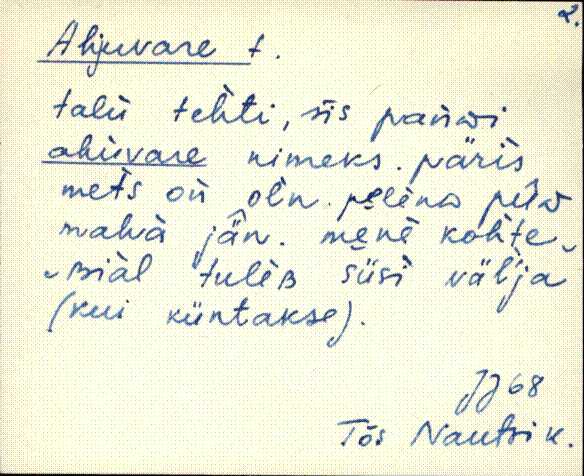 2.
Ahjuvare t.
talù tehti, sìs paǹnɒi
ahiùvare nimeks. päris
mets oǹ olǹ. pelèna pùw
maha jän. menè kohte
ʙiàl tulèʙ süsì välja
(kui küntakse).
JJ 68
Tõs Nautsi k.